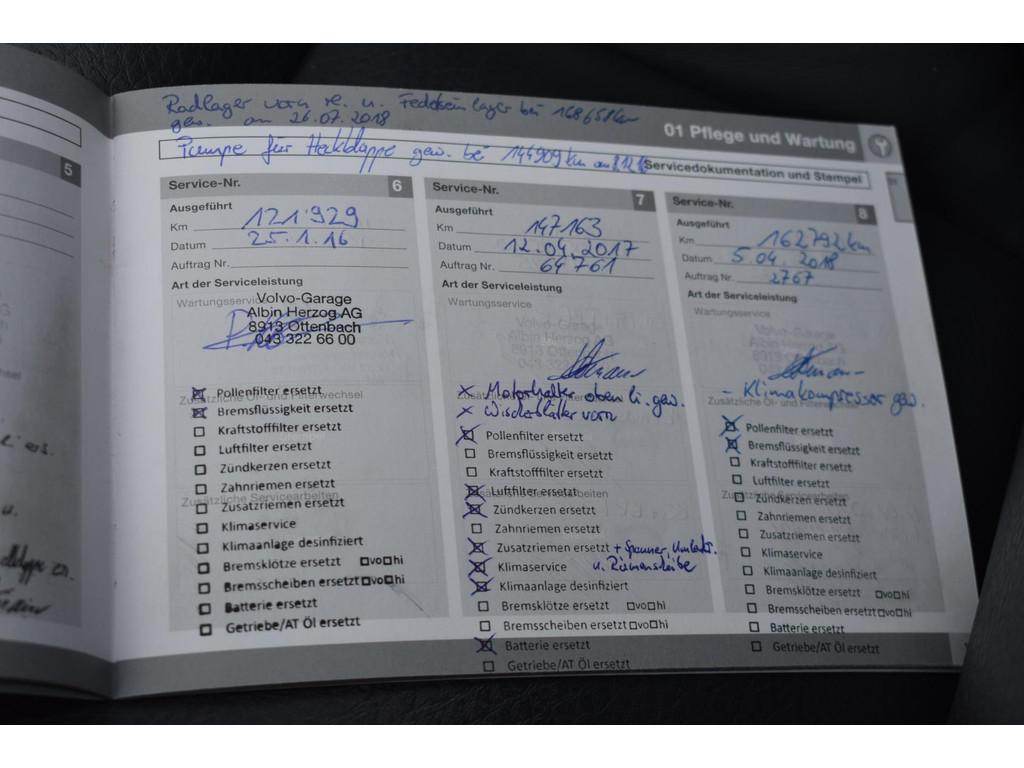 Radlager vorn re. u. Federbeinlager bei 168658km
gew. am 26.07.2018
01 Pflege und Wartung
Pumpe für Heckklappe gew. bei 144909km am
Servicedokumentation und Stempel
5
Service-Nr. 6
Ausgeführt
Km 121'929
Datum 25.1.16
Auftrag Nr.
Art der Serviceleistung
Wartungsservice
Volvo-Garage
Albin Herzog AG
8913 Ottenbach
043 322 66 00
Pollenfilter ersetzt
Zusätzliche Öl- und Filterwechsel
Bremsflüssigkeit ersetzt
Kraftstofffilter ersetzt
Luftfilter ersetzt
Zündkerzen ersetzt
Zahnriemen ersetzt
Zusätzliche Servicearbeiten
Zusatzriemen ersetzt
Klimaservice
Klimaanlage desinfiziert
Bremsklötze ersetzt vo hi
Bremsscheiben ersetzt vo hi
Batterie ersetzt
Getriebe/AT Öl ersetzt
Service-Nr. 7
Ausgeführt
Km 147163
Datum 12.04.2017
Auftrag Nr. 64761
Art der Serviceleistung
Wartungsservice
Volvo-Garage
Albin Herzog AG
8913 Ottenbach
043 322 66 00
x Motorhalter oben li. gew.
x Wischerblätter vorn
Pollenfilter ersetzt
Bremsflüssigkeit ersetzt
Kraftstofffilter ersetzt
Luftfilter ersetzt
Zusätzliche Servicearbeiten
Zündkerzen ersetzt
Zahnriemen ersetzt
Zusatzriemen ersetzt + Spanner, Umlenkr.
Klimaservice u. Riemenscheibe
Klimaanlage desinfiziert
Bremsklötze ersetzt vo hi
Bremsscheiben ersetzt vo hi
Batterie ersetzt
Getriebe/AT Öl ersetzt
Service-Nr. 8
Ausgeführt
Km 162792km
Datum 5.04.2018
Auftrag Nr. 2767
Art der Serviceleistung
Wartungsservice
Volvo-Garage
Albin Herzog AG
- Klimakompressor gew.
Zusätzliche Öl- und Filterwechsel
Pollenfilter ersetzt
Bremsflüssigkeit ersetzt
Kraftstofffilter ersetzt
Luftfilter ersetzt
Zusätzliche Servicearbeiten
Zündkerzen ersetzt
Zahnriemen ersetzt
Zusatzriemen ersetzt
Klimaservice
Klimaanlage desinfiziert
Bremsklötze ersetzt vo hi
Bremsscheiben ersetzt vo hi
Batterie ersetzt
Getriebe/AT Öl ersetzt